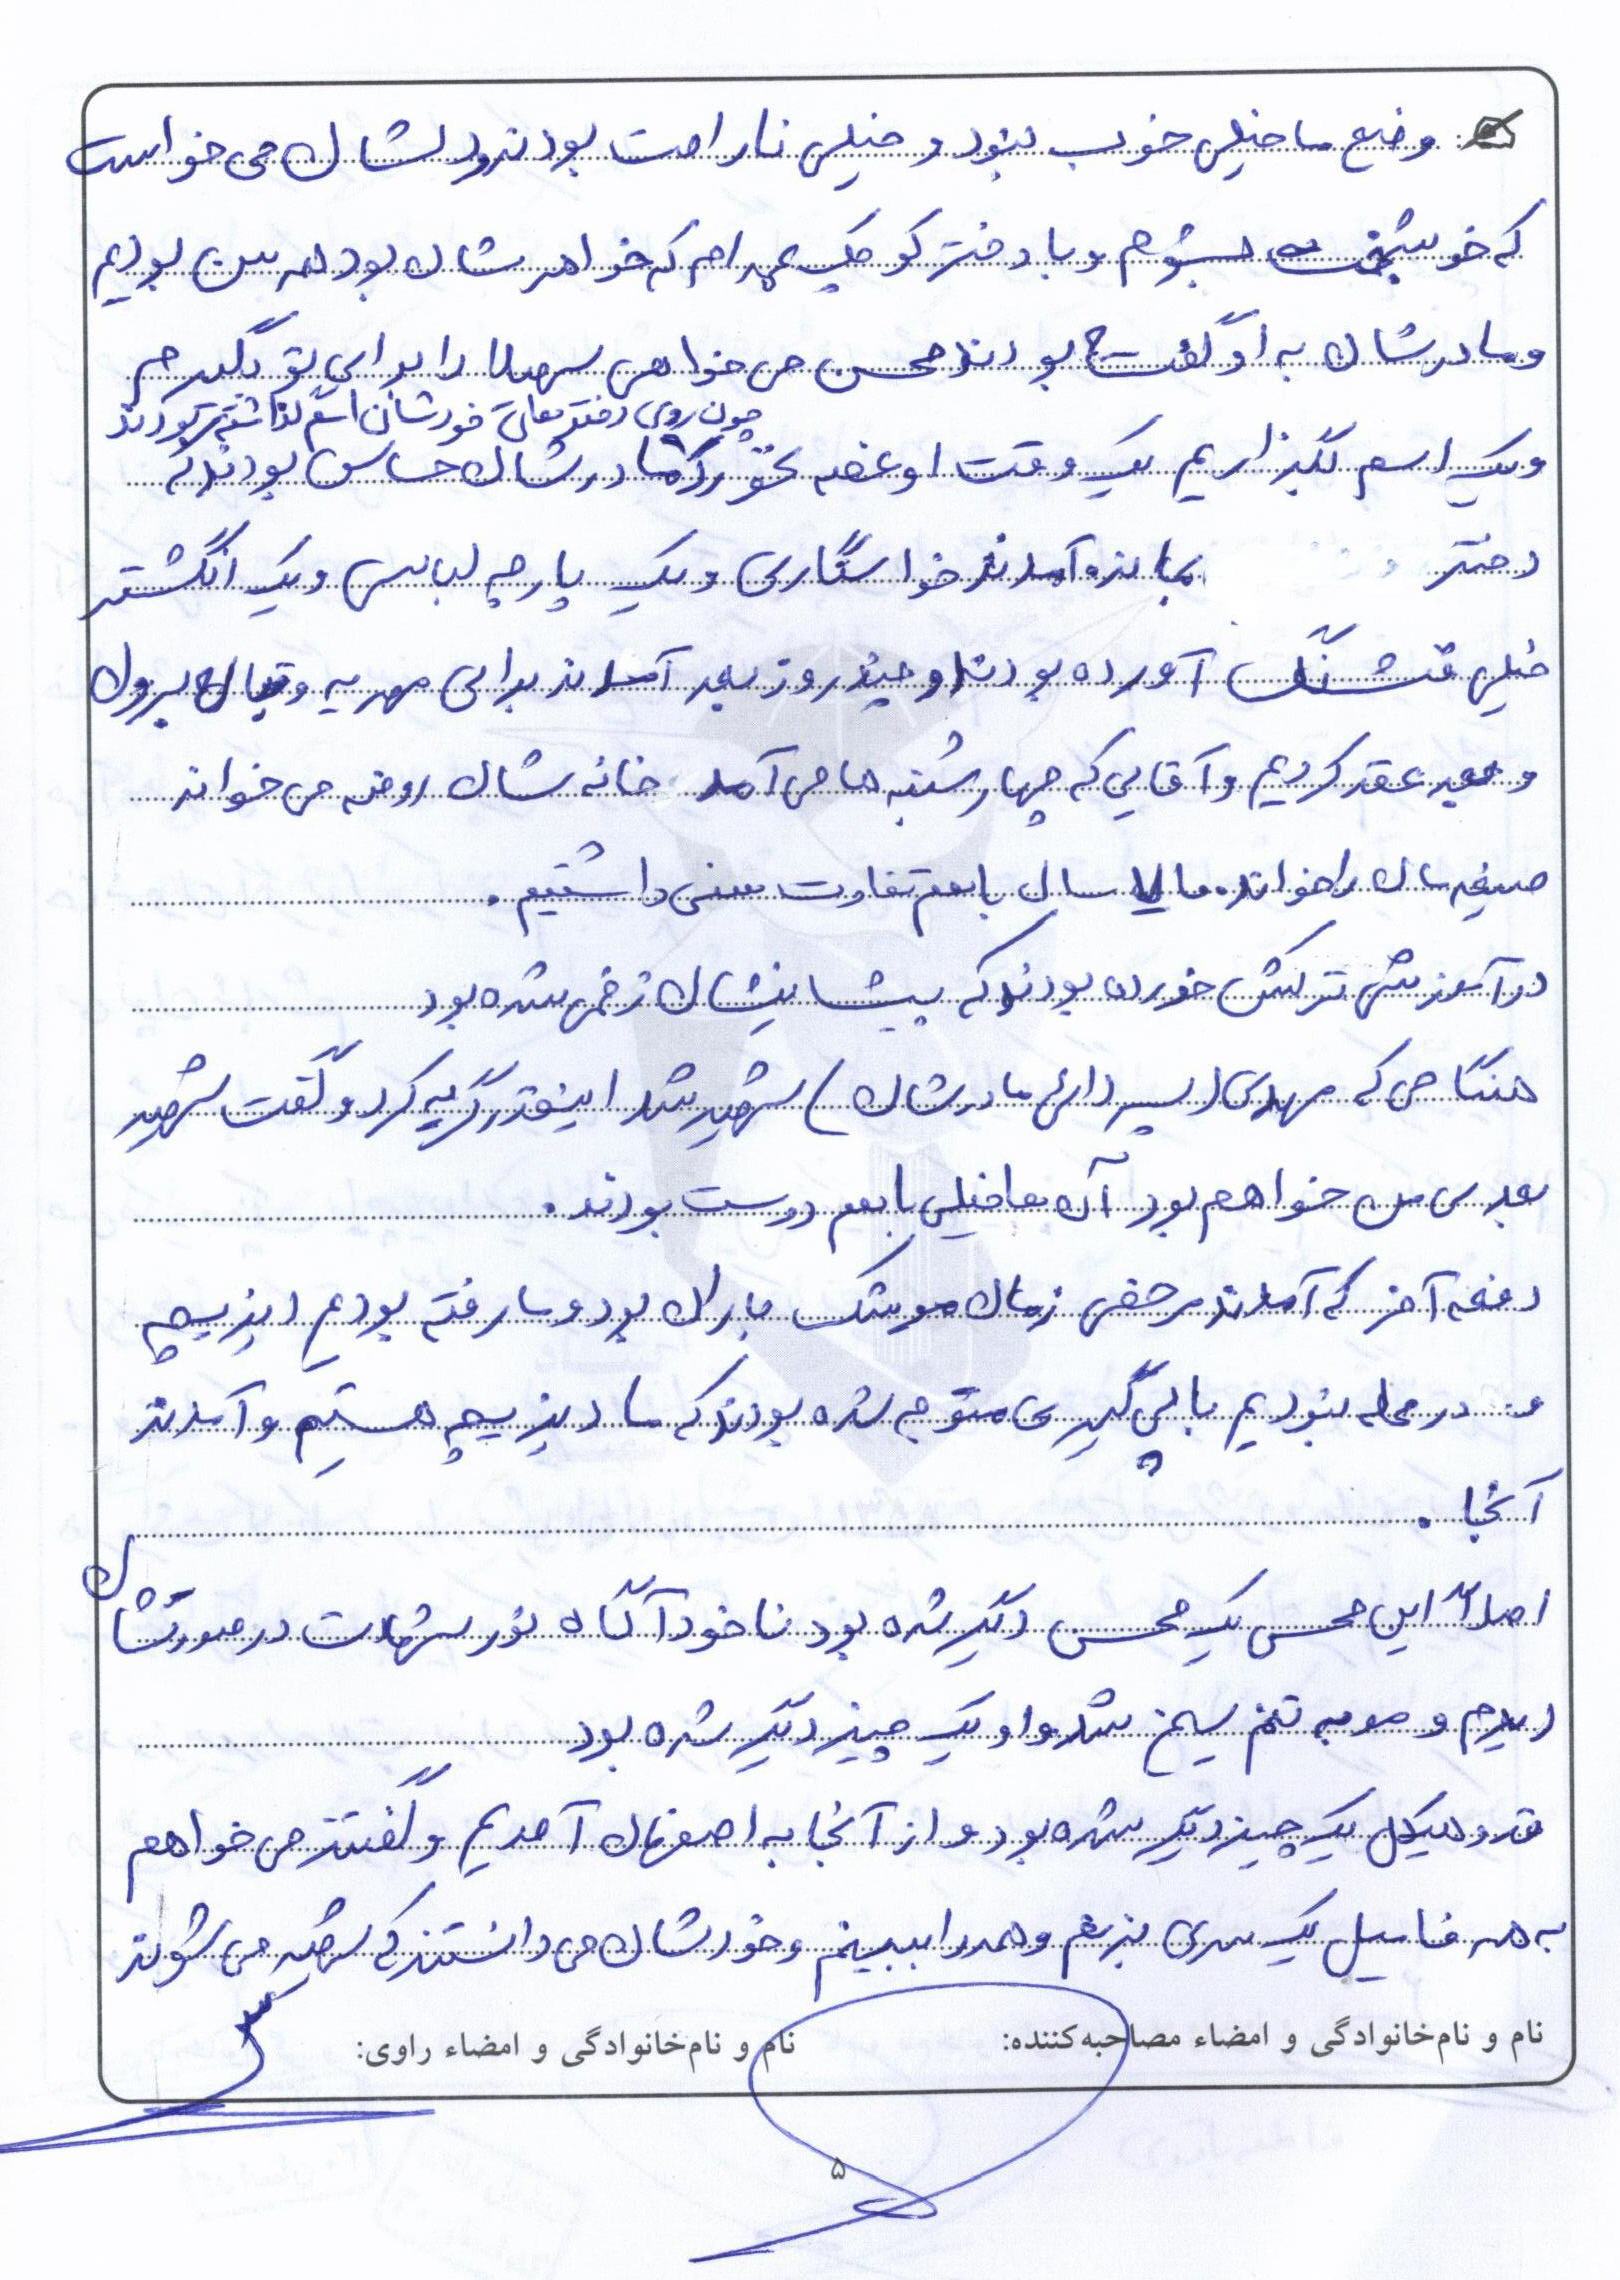 وضع ما خیلی خوب نبود و خیلی ناراحت بودند و دلشان می خواست
که خوشبخت بشوم و با دختر کوچک عمه ام که خواهرشان بود هم سن بودیم
و مادرشان به او گفته بودند محسن می خواهی سهیلا را برای تو بگیرم
چون روی دختر های خودشان اسم نذاشته بودند
و یک اسم بگذاریم یک وقت او غصه نخورد مادرشان حساس بودند که
دختر بماند و آمدند خواستگاری و یک پارچه لباس و یک انگشتر
خیلی قشنگ آورده بودند و چند روز بعد آمدند برای مهریه و قباله بردن
و بعد عقد کردیم و آقایی که چهارشنبه ها می آمد خانه شان روضه می خواند
صیغه مان را خواند. ما ۷ سال با هم تفاوت سنی داشتیم.
در آموزشی ترکش خورده بودند که پیشانیشان زخمی شده بود
هنگامی که مهدی (پسر دائی مادرشان) شهید شد اینقدر گریه کرد و گفت شهید
بعدی من خواهم بود آن ها خیلی با هم دوست بودند.
دفعه آخر که آمدند مرخصی زمان موشک باران بود و ما رفته بودیم دیزیچه
و در محله نبودیم با پی گیری متوجه شده بودند که ما دیزیچه هستیم و آمدند
آنجا.
اصلاً این محسن یک محسن دیگر شده بود ناخودآگاه نور شهادت در صورتشان
دیدم و مو به تنم سیخ شد و او یک چیز دیگر شده بود
قد و هیکل یک چیز دیگر شده بود و از آنجا به اصفهان آمدیم و گفتند می خواهم
به همه فامیل یک سری بزنم و همه را ببینم و خودشان می دانستند که شهید می شوند
نام و نام‌خانوادگی و امضاء مصاحبه‌کننده:
نام و نام‌خانوادگی و امضاء راوی:
۵